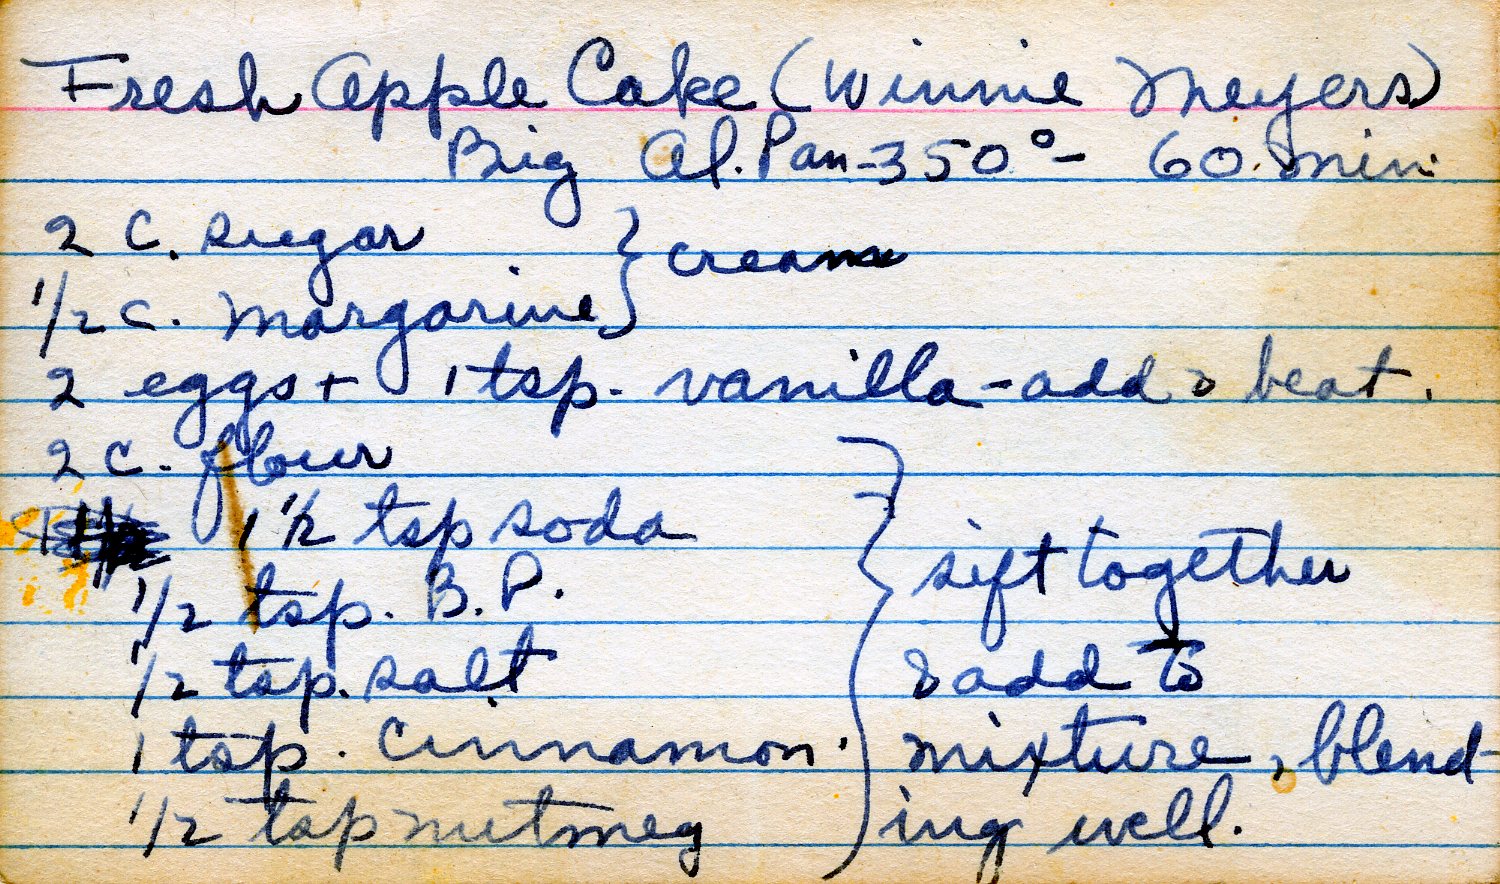 Fresh Apple Cake (Winnie Meyers)
Big Al. Pan - 350° - 60 min.
2 c. sugar } cream
1/2 c. margarine
2 eggs + 1 tsp. vanilla - add & beat.
2 c. flour
1 1/2 tsp soda
1/2 tsp. B.P. } sift together
1/2 tsp. salt & add to
1 tsp. cinnamon. mixture, blend-
1/2 tsp nutmeg ing well.